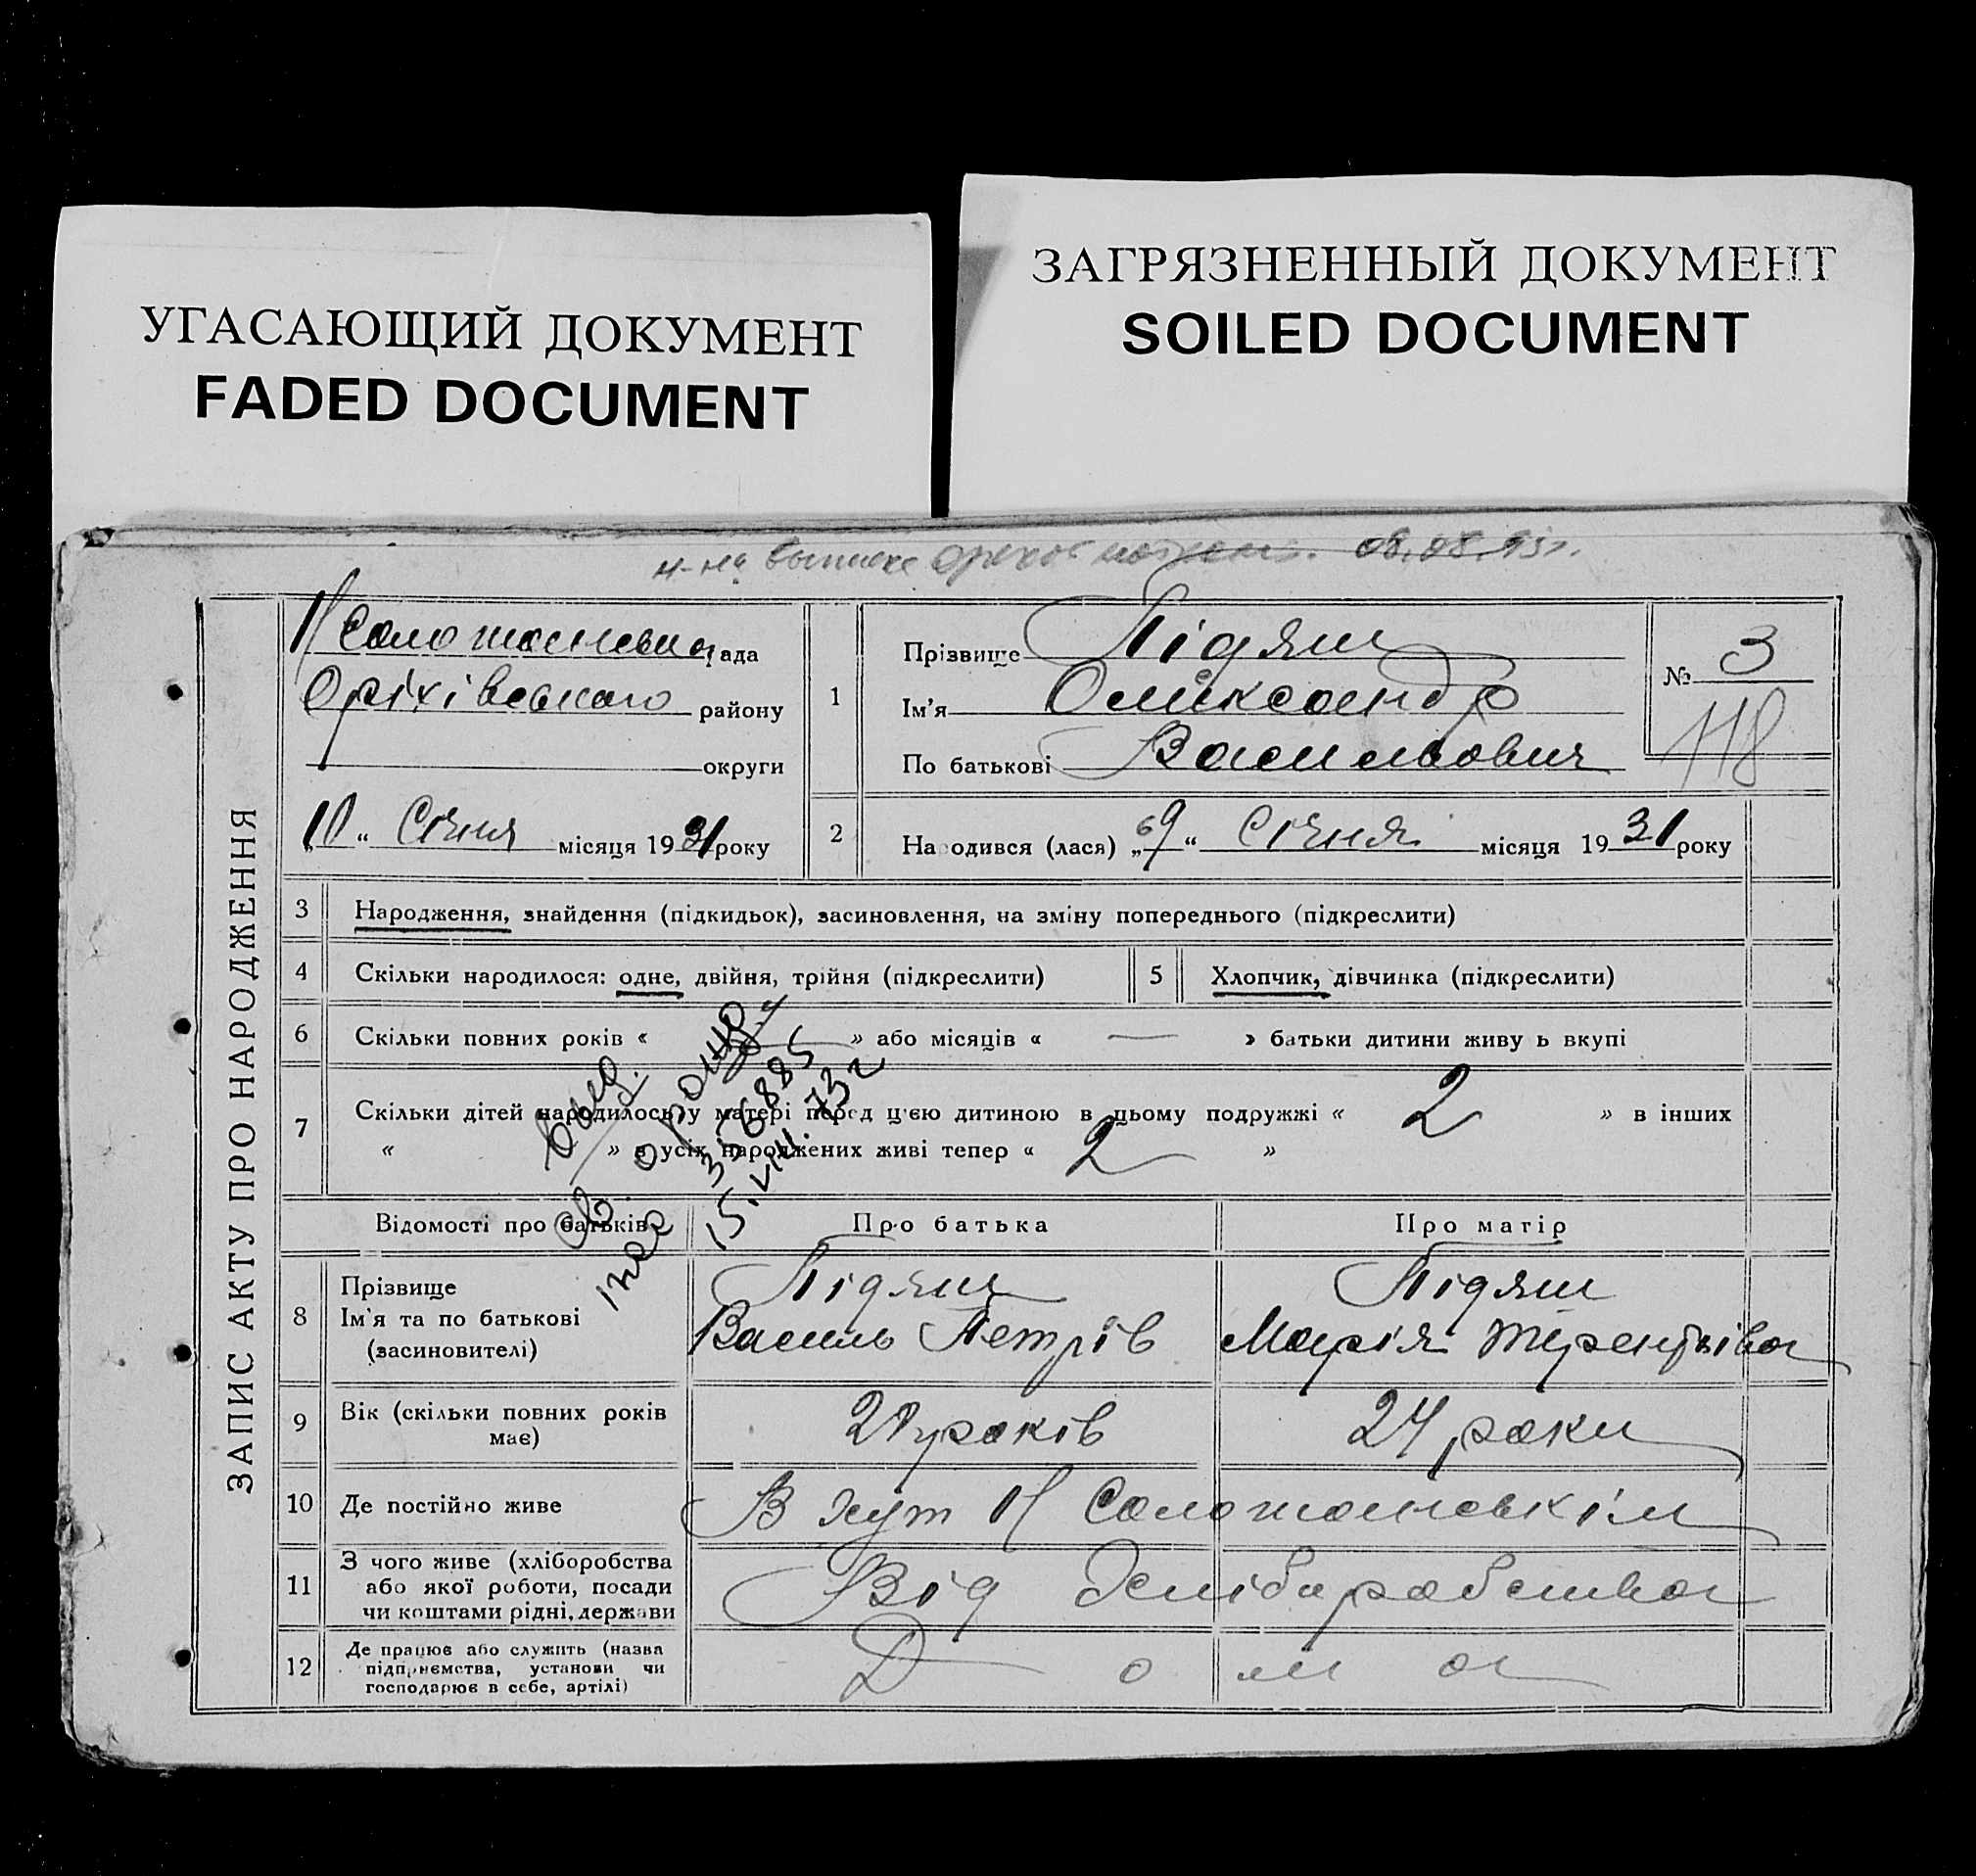 УГАСАЮЩИЙ ДОКУМЕНТ
FADED DOCUMENT
ЗАГРЯЗНЕННЫЙ ДОКУМЕНТ
SOILED DOCUMENT
08.08.
ЗАПИС АКТУ ПРО НАРОДЖЕННЯ
рада
Оріхівського району
округи
10 “ Січня місяця 1931 року
1
Прізвище Підяш
Ім'я Оликсандр
По батькові Васильович
№ 3
118
2
Народився (лася) „ 9 “ Січня місяця 1931 року
3 Народження, знайдення (підкидьок), засиновлення, на зміну попереднього (підкреслити)
4 Скільки народилося: одне, двійня, трійня (підкреслити)
5 Хлопчик, дівчинка (підкреслити)
6 Скільки повних років « — » або місяців « — » батьки дитини живуть вкупі
7 Скільки дітей народилось у матері перед цією дитиною в цьому подружжі « 2 » в інших
« » в усіх народжених живі тепер « 2 »
356885
15.VIII.73г
Відомості про батьків
Про батька
Про матір
8 Прізвище
Ім'я та по батькові
(засиновителі)
Підяш
Василь Петрів
Підяш
Марія Терентьівна
9 Вік (скільки повних років
має)
років
24 роки
10 Де постійно живе
В хут Н Солотанськім
11 З чого живе (хліборобства
або якої роботи, посади
чи коштами рідні, держави
Від
12 Де працює або служить (назва
підприємства, установи чи
господарює в себе, артілі)
Дома